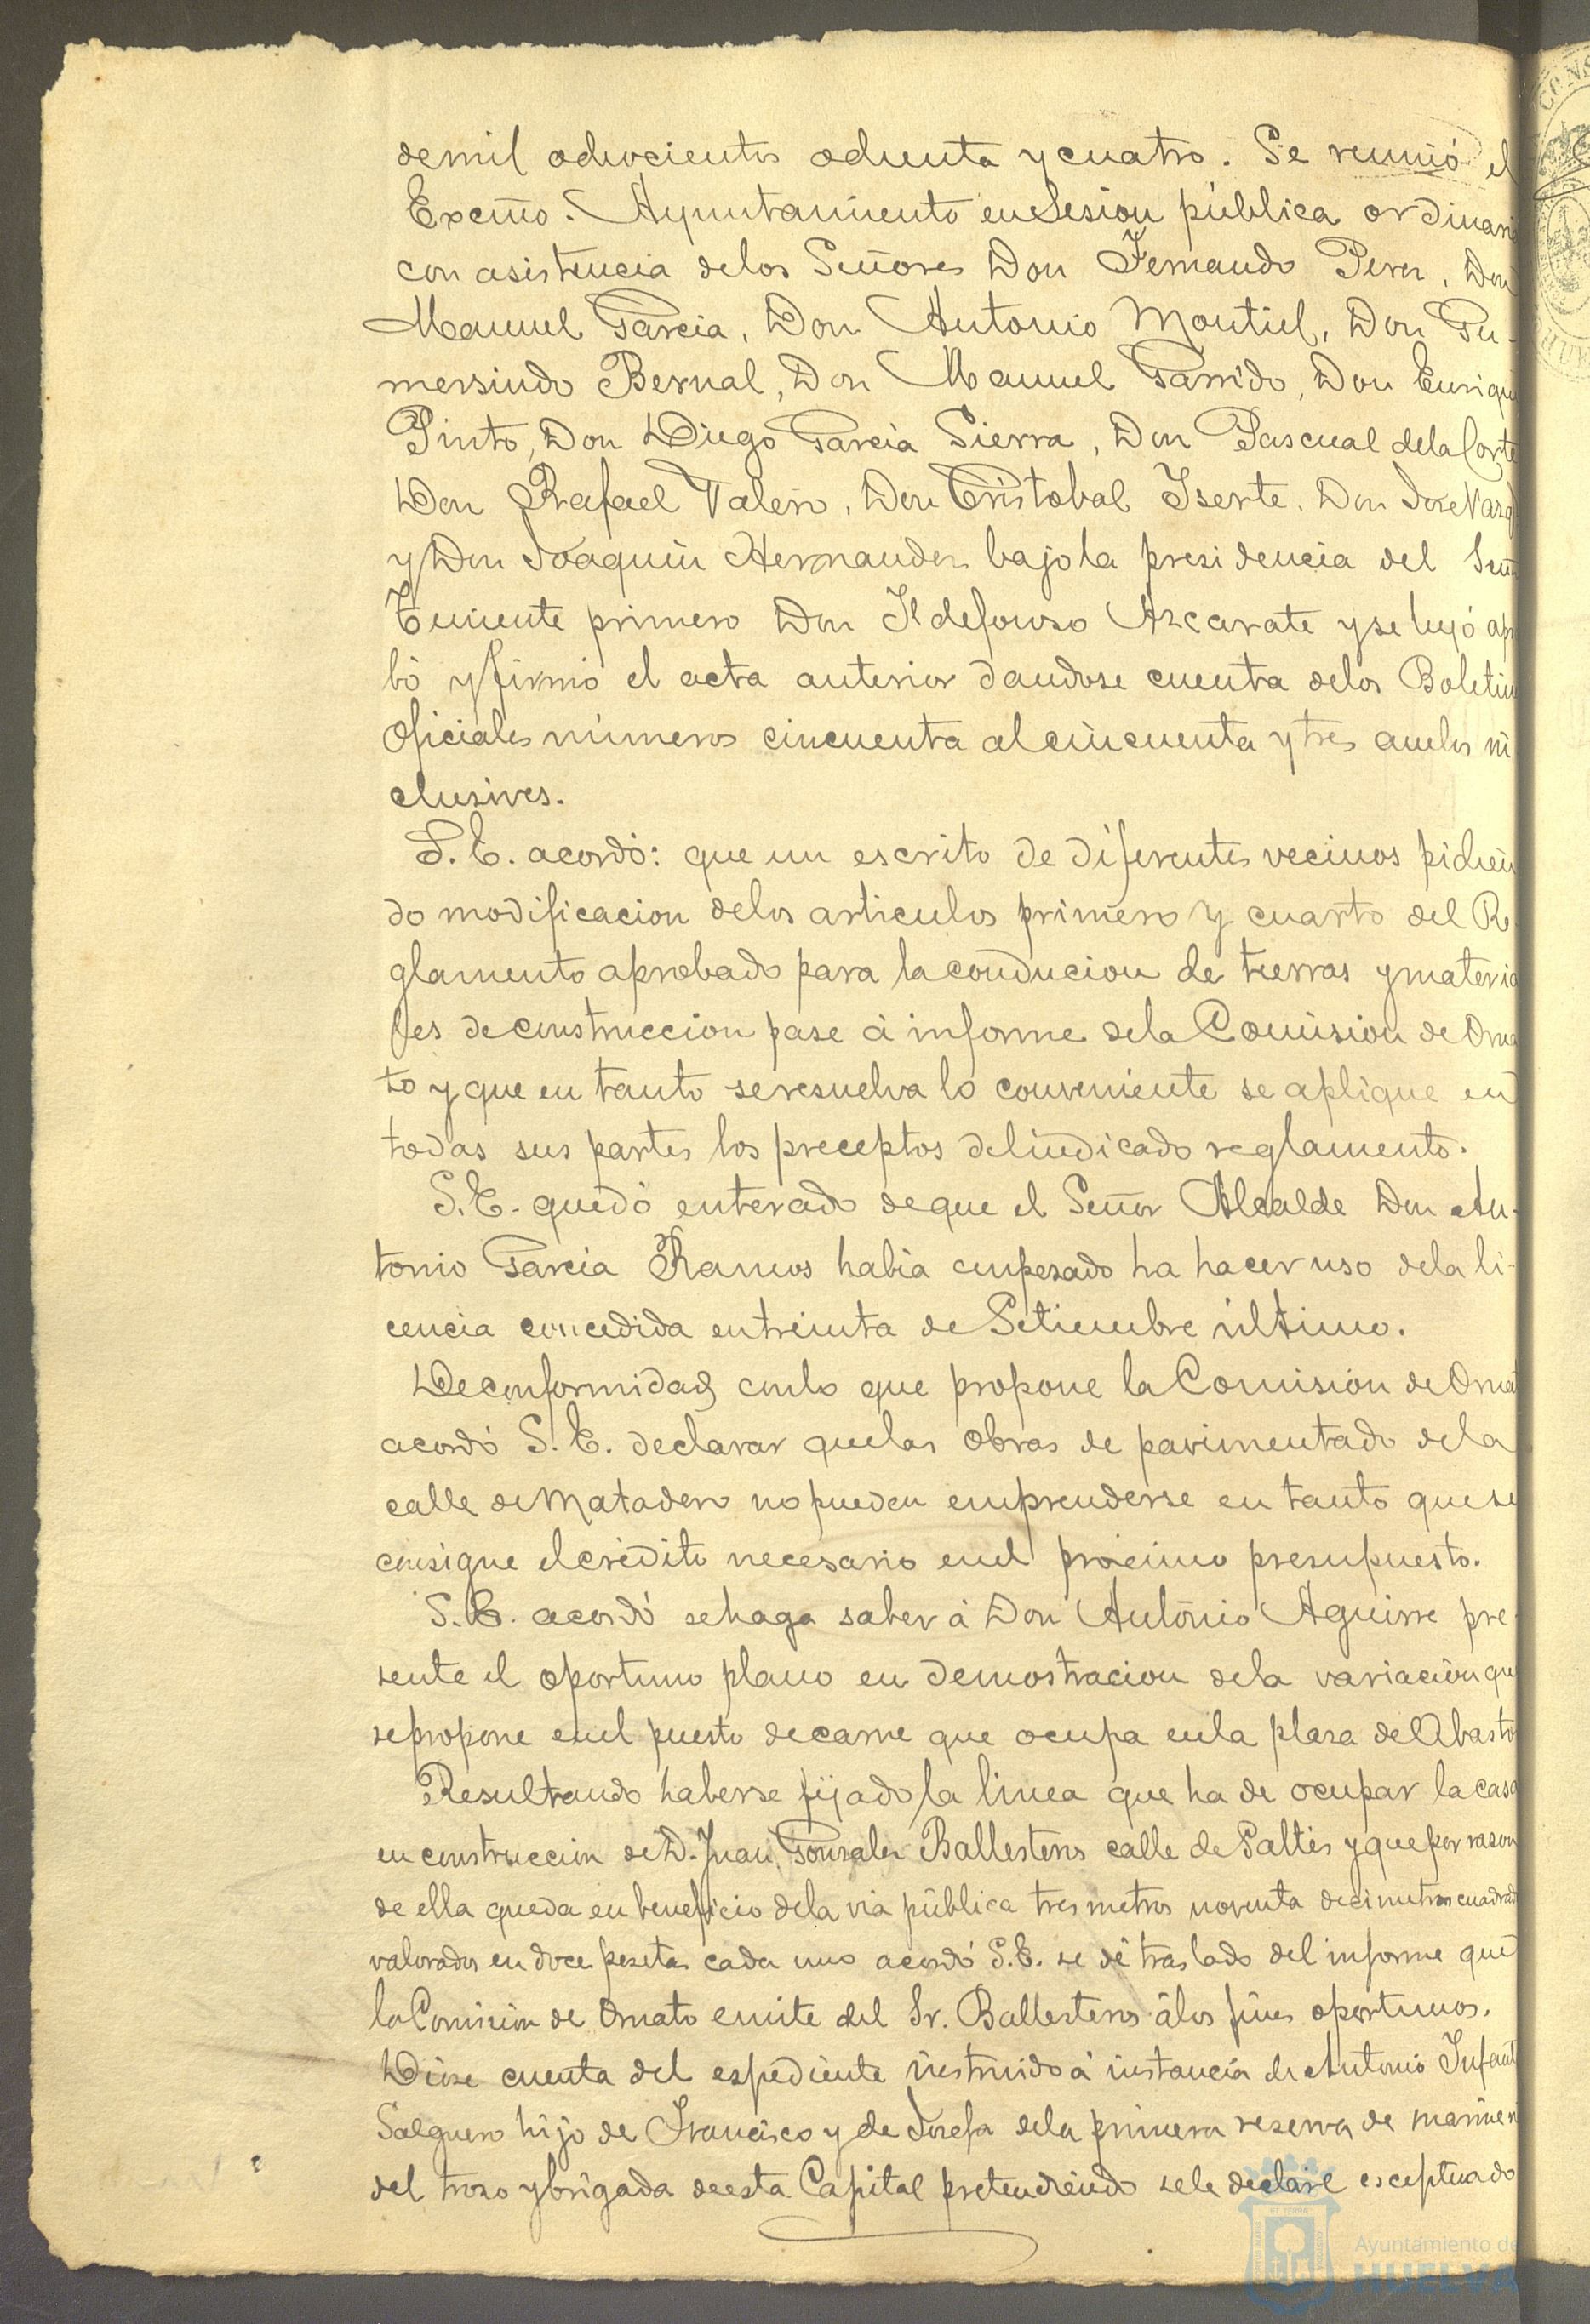 de mil ochocientos ochenta y cuatro. Se reunió el
Excmo. Ayuntamiento en Sesion pública ordinari
con asistencia de los Señores Don Fernando Perez, Don
Manuel Garcia, Don Antonio Montiel, Don Gu-
mersindo Bernal, Don Manuel Garrido, Don Enrique
Pinto, Don Diego Garcia Sierra, Don Pascual de la Corte
Don Rafael Valero, Don Cristobal Iserte, Don Jose
y Don Joaquin Hernandez bajo la presidencia del Señ
Teniente primero Don Ildefonso Azcarate y se leyó apr
bó y firmó el acta anterior dandose cuenta de los Boletin
Oficiales números cincuenta al cincuenta y tres ambos in
clusives.
S. E. acordó: que un escrito de diferentes vecinos pidien
do modificacion de los articulos primero y cuarto del Re
glamento aprobado para la conducion de tierras y materia
les de construccion pase á informe de la Comision de Orna
to y que en tanto se resuelva lo conveniente se aplique en
todas sus partes los preceptos del indicado reglamento.
S. E. quedó enterado de que el Señor Alcalde Don An-
tonio Garcia Ramos habia empezado ha hacer uso de la li-
cencia concedida en treinta de Setiembre último.
De conformidad con lo que propone la Comision de Ornat
acordó S. E. declarar que las obras de pavimentado de la
calle de Matadero no pueden emprenderse en tanto que se
consigne el crédito necesario en el procimo presupuesto.
S. E. acordó se haga saber á Don Antonio Aguirre pre-
sente el oportuno plano en demostracion de la variacion que
se propone en el puesto de carne que ocupa en la plaza de Abasto
Resultando haberse fijado la linea que ha de ocupar la casa
en construccion de D. Juan Gonzalez Ballesteros calle de Saltés y que por razon
de ella queda en beneficio de la via pública tres metros noventa decimetros cuadrad
valorados en doce pesetas cada uno acordó S. E. se dé traslado del informe que
la Comision de Ornato emite del Sr. Ballesteros á los fines oportunos.
Diose cuenta del espediente instruido á instancia de Antonio Infant
Salguero hijo de Francisco y de Josefa de la primera reserva de mariner
del trozo y brigada de esta Capital pretendiendo se le declare esceptuado
Ayuntamiento de
HUELVA